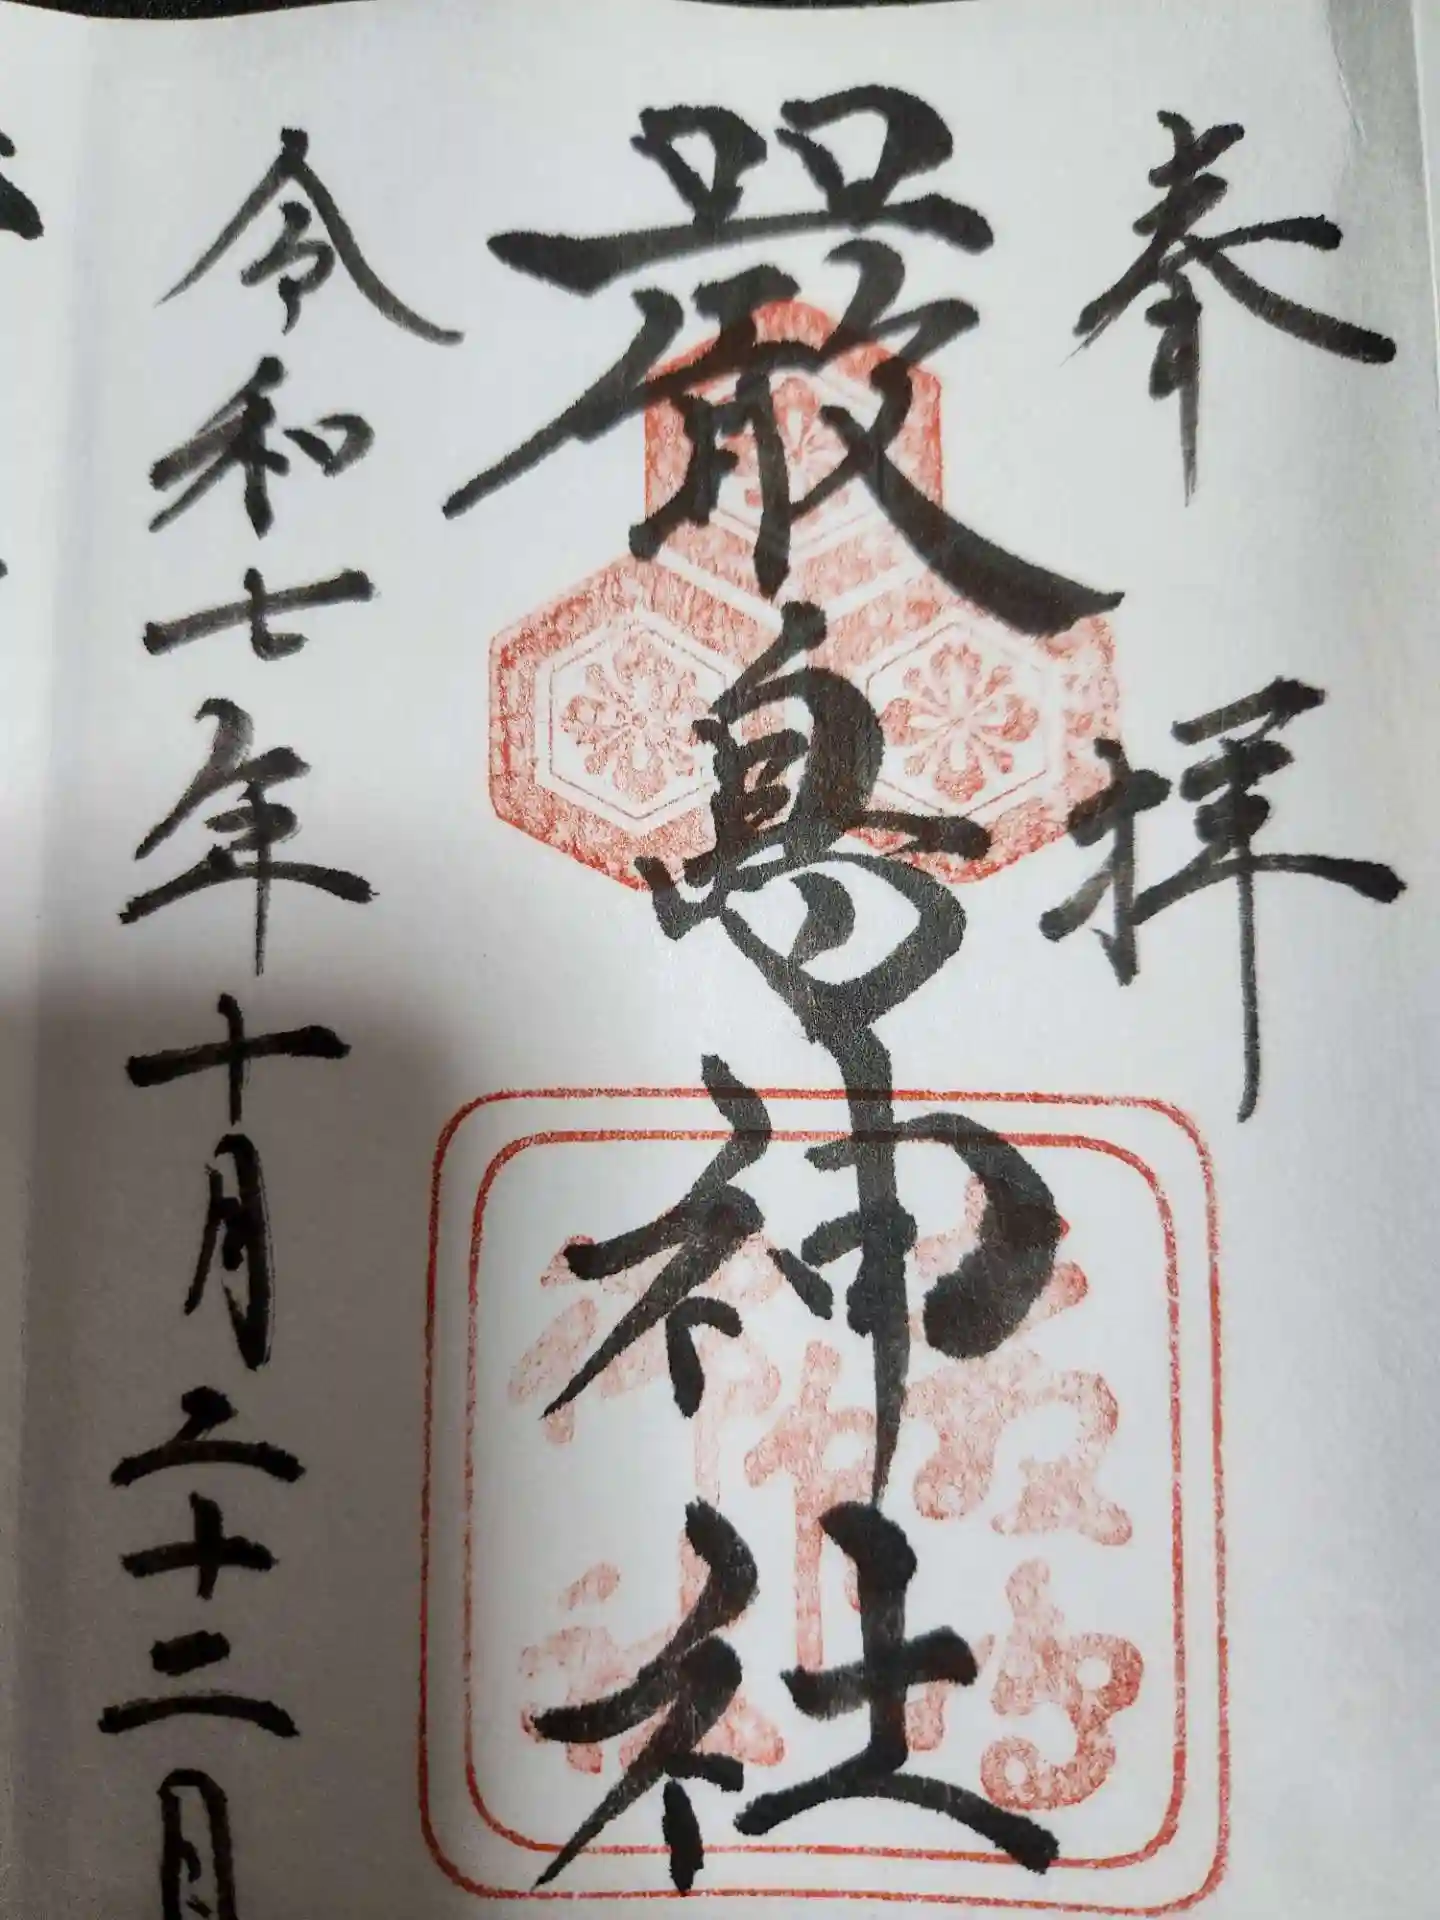 奉拝
嚴島神社
嚴島神社
令和七年十月二十二日